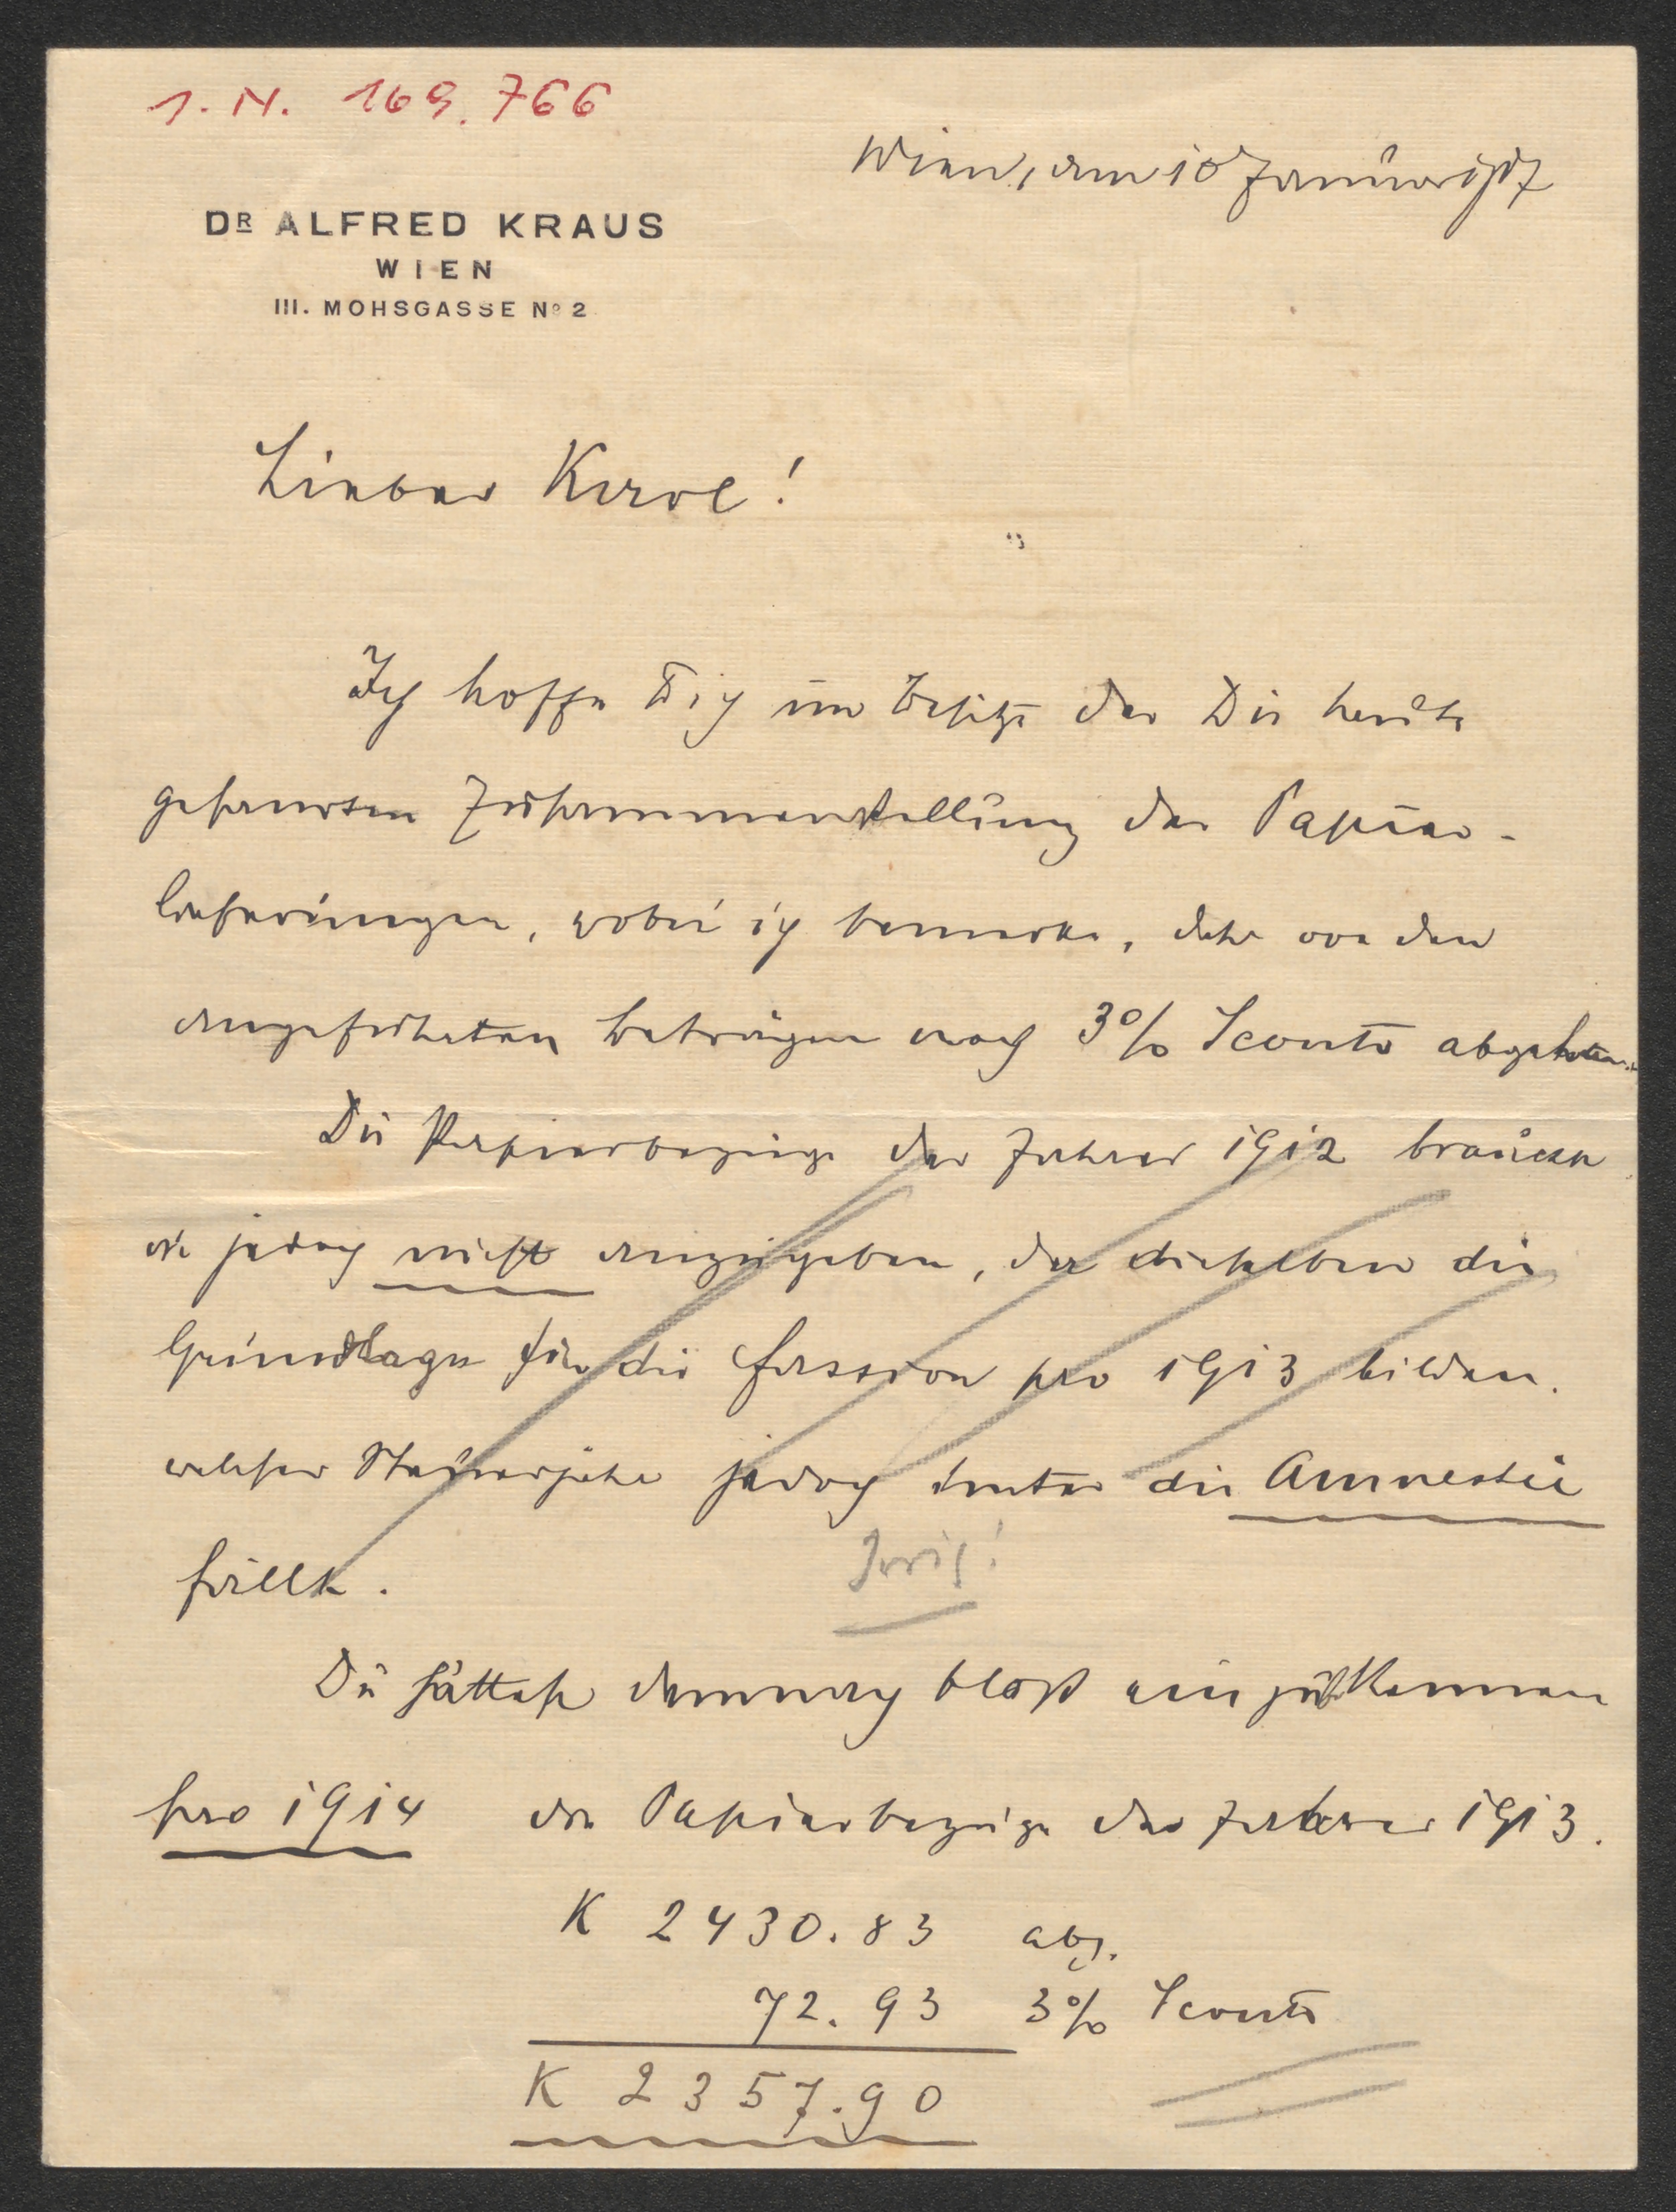 I. N. 169.766
Wien, am 10 Januar 1917
DR ALFRED KRAUS
WIEN
III. MOHSGASSE No 2
Lieber Karl!
Ich hoffe Dich im Besitze der Dir heute
gesandten Zusammenstellung der Papier-
lieferungen, wobei ich bemerke, dass von den
angeführten Beträgen noch 3% Sconto abgehen.
Die Papierbezüge des Jahres 1912 brauchen
wir jedoch nicht anzugeben, da dieselben die
Grundlage für die Fassion pro 1913 bilden.
welches Steuerjahr jedoch unter die Amnestie
fällt.
Du hättest demnach bloß einzubekennen
pro 1914 die Papierbezüge des Jahres 1913.
K 2430.83 abz.
72.93 3% Sconto
K 2357.90